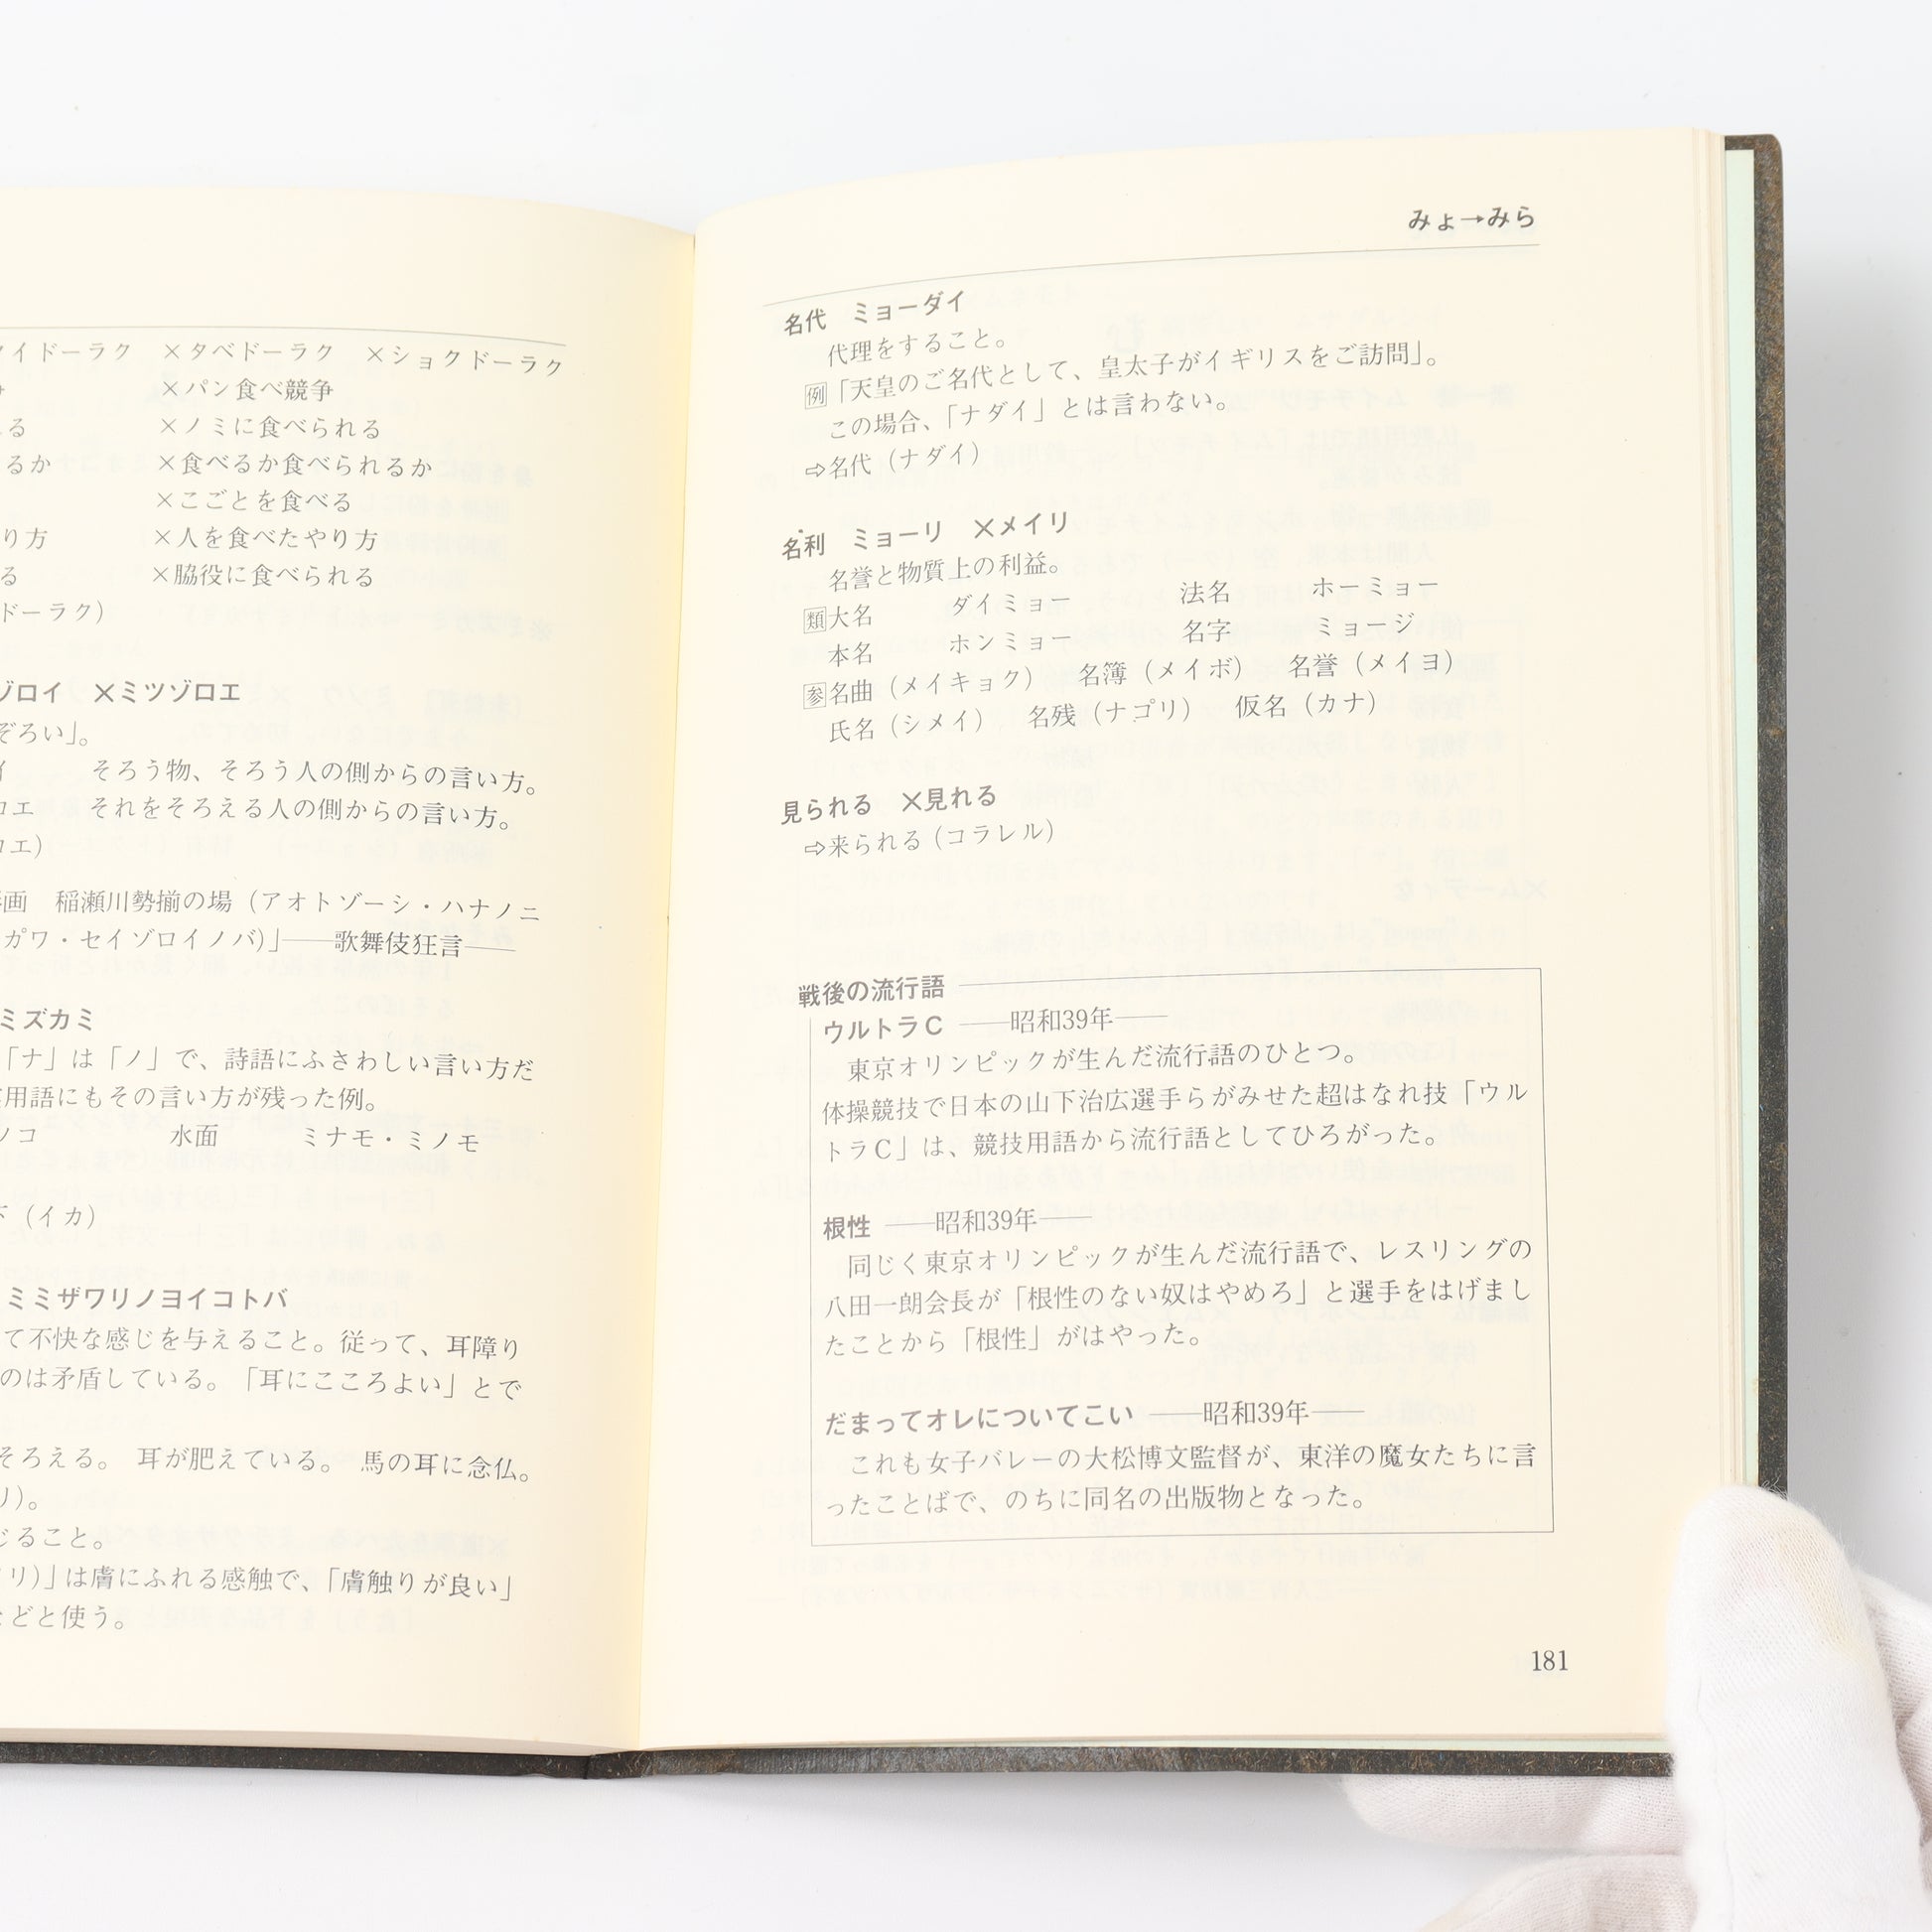 イドーラク　×タベドーラク　×ショクドーラク
×パン食べ競争
る　×ノミに食べられる
るか　×食べるか食べられるか
×こごとを食べる
り方　×人を食べたやり方
る　×脇役に食べられる
ドーラク）
ゾロイ　×ミツゾロエ
ぞろい」。
イ　そろう物、そろう人の側からの言い方。
ロエ　それをそろえる人の側からの言い方。
ロエ）
画　稲瀬川勢揃の場（アオトゾーシ・ハナノニ
ガワ・セイゾロイノバ）」――歌舞伎狂言――
ミズカミ
「ナ」は「ノ」で、詩語にふさわしい言い方だ
用語にもその言い方が残った例。
ノコ　水面　ミナモ・ミノモ
下（イカ）
ミミザワリノヨイコトバ
て不快な感じを与えること。従って、耳障り
のは矛盾している。「耳にこころよい」とで
そろえる。　耳が肥えている。　馬の耳に念仏。
リ）。
じること。
リ）」は膚にふれる感触で、「膚触りが良い」
などと使う。
みょ→みら
名代　ミョーダイ
代理をすること。
例「天皇のご名代として、皇太子がイギリスをご訪問」。
この場合、「ナダイ」とは言わない。
⇨名代（ナダイ）
名利　ミョーリ　×メイリ
名誉と物質上の利益。
類大名　ダイミョー　法名　ホーミョー
本名　ホンミョー　名字　ミョージ
参名曲（メイキョク）　名簿（メイボ）　名誉（メイヨ）
氏名（シメイ）　名残（ナゴリ）　仮名（カナ）
見られる　×見れる
⇨来られる（コラレル）
戦後の流行語
ウルトラC　――昭和39年――
東京オリンピックが生んだ流行語のひとつ。
体操競技で日本の山下治広選手らがみせた超はなれ技「ウル
トラC」は、競技用語から流行語としてひろがった。
根性　――昭和39年――
同じく東京オリンピックが生んだ流行語で、レスリングの
八田一朗会長が「根性のない奴はやめろ」と選手をはげまし
たことから「根性」がはやった。
だまってオレについてこい　――昭和39年――
これも女子バレーの大松博文監督が、東洋の魔女たちに言
ったことばで、のちに同名の出版物となった。
181